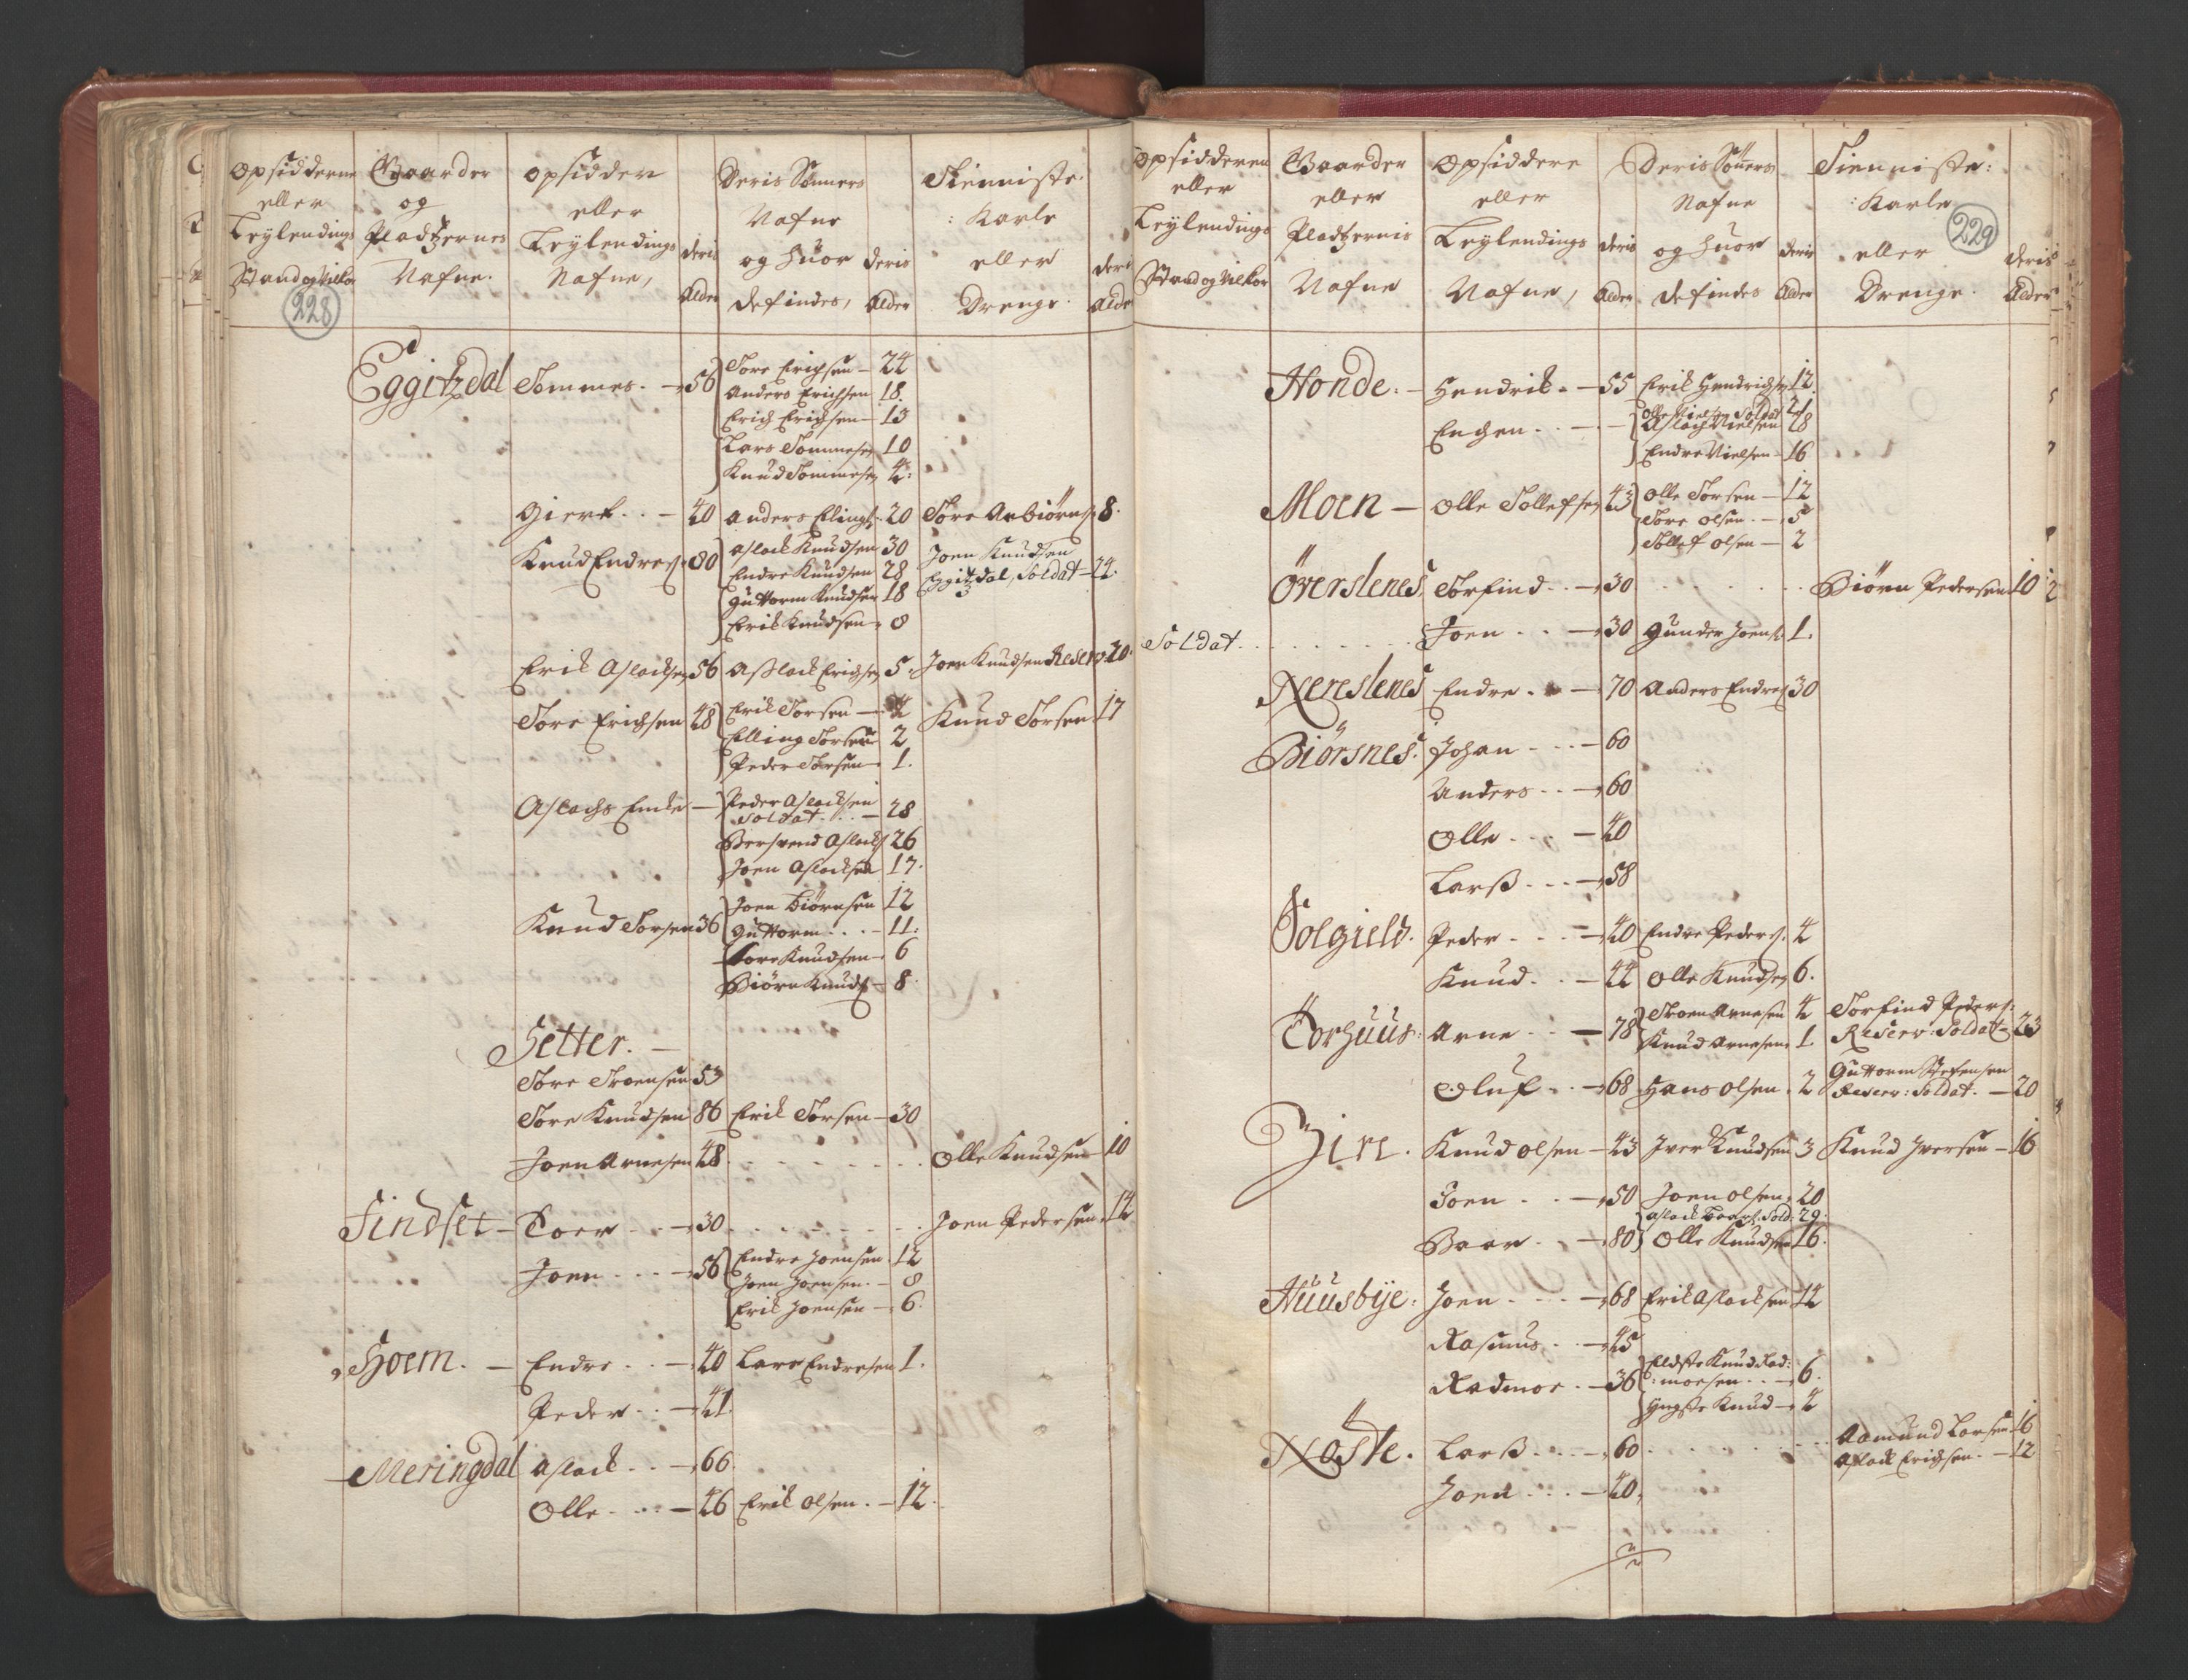 Opsidderne
eller
Leylendings
Stand og Vilkor
228
Gaarder
og
Pladtzernes
Nafne.
Opsidder
eller
Leylendings
Nafne,
deris
Alder
Deris Sønners
Nafne
og huor
de findes,
deris
Alder
Tienniste
: Karle
eller
Drenge.
deris
Alder
Eggitzdal Tommes. — 56 Tore Erichsen — 24
Anders Erichsen 18.
Erich Erichsen — 13
Lars Tommesen 10
Knud Tommesen 4.
Giert . . — 40 Anders Ellings. 20 Tore Anbiørns. 8.
Knud Endres. 80 Aslack Knudsen 30 Joen Knudsen
Endre Knudsen 28 Eggitzdal, Soldat — 24.
Guttorm Knudsen 18
Erik Knudsen . 8
Erik Aslacksen 56 Asslack Erichsen 5. Joen Knudsen Reserv. 20.
Tore Erichsen 48 Erik Torsen — 4 Knud Torsen 17
Elling Torsen 2
Peder Torsen . 1.
Aslachs Encke — Peder Aslacksen
soldat . . . — 28
Bersvend Aslacks. 26
Joen Aslacksen 17.
Knud Torsen 36 Joen Biørnsen 12
Guttorm . . . — 11.
Tore Knudsen . 6
Biørn Knuds. — 8.
Setter. —
Tore Troensen 53
Tore Knudsen 86 Erik Torsen — 30
Joen Arnesen 48 . . . . . . . Olle Knudsen — 10
Findset — Toer . . — 30 . . . . . . . Joen Pedersen . 14
Joen . . . — 56 Endre Joensen . 12
Joen Joensen. — 8
Erik Joensen — 6.
Hoem. — Endre . . — 40 Lars Endresen 1.
Peder . . — 41.
Meringdal Aslack . . — 66
Olle . . . . — 46 Erik Olsen . — 12.
Opsidderen
eller
Leylendings
Stand og Vilkor
Gaarder
eller
Pladtzernis
Nafne
Opsiddere
eller
Leylendings
Nafne,
deris
Alder
Deris Sønners
Nafne
og huor
de findes
deris
Alder
Tienniste:
: Karle
eller
Drenge.
229
deris
Alder
Honde: — Hendrik. — 55 Erik Hendrichsen 12.
Enchen . . — Olle Nielsen Soldat 24
Aslach Nielsen 18
Endre Nielsen — 16
Moen — Olle Tollefsen 43 Olle Torsen — 12
Tore Olsen . — 5
Tollef Olsen — 2
Överslenes Torfind . . — 30 . . . . . . Biørn Pedersen 10
Soldat . . . . . . . . Joen . . . — 30 Gunder Joens. 1.
Nereslenes Endre . . — 70 Anders Endres. 30
Biørsnes. Johan . . . — 60
Anders . . — 60
Olle . . . — 40
Larss . . . — 58
Solgield. Peder . . . — 40 Endre Peders. 4
Knud . . — 44 Olle Knudsen 6.
Torhuus: Arne . . — 78 Troen Arnesen 4 Torfind Peders:
Knud Arnesen . 1. Reserv: Soldat — 23
Oluf . . — 68 Hans Olsen . 2 Guttorm Stefensen
Reserv: Soldat. — 20
Jire. Knud Olsen — 43 Iver Knudsen 3 Knud Iversen — 16
Joen . . — 50 Joen Olsen . 20
Baar . . — 80 Aslack Baars. Sold: 29.
Olle Knudsen 16.
Huusbye: Joen . . . — 68 Erik Aslacksen 14
Rasmus . . — 45
Radmoe . — 36 Eldste Knud Rad:
: moesen . . — 6.
Yngste Knud — 4
Näste. Larss . . . — 60 . . . . . . Aamund Larsen 16
Aslack Erichsen . — 12
Joen . . . — 40.